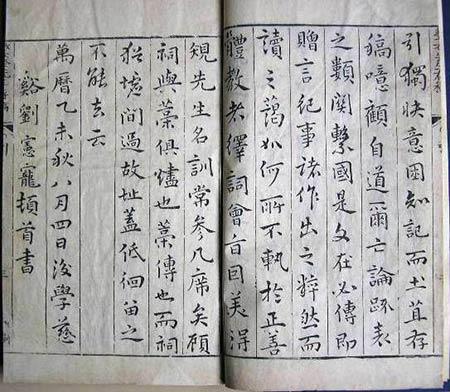 引獨快意困知記而土苴存
稿噫顧自道一爾亡論疏表
之類關繫國是文在必傳即
贈言紀事諸作出之粹然而
讀之藹如何所不軌於正善
體教者繹詞會旨固美得
覌先生名訓常參几席矣顧
祠與藁俱燼也藁傳也而祠
猶墟間過故址蓋低徊留之
不能去云
萬曆乙未秋八月四日後學慈
谿劉憲寵頓首書